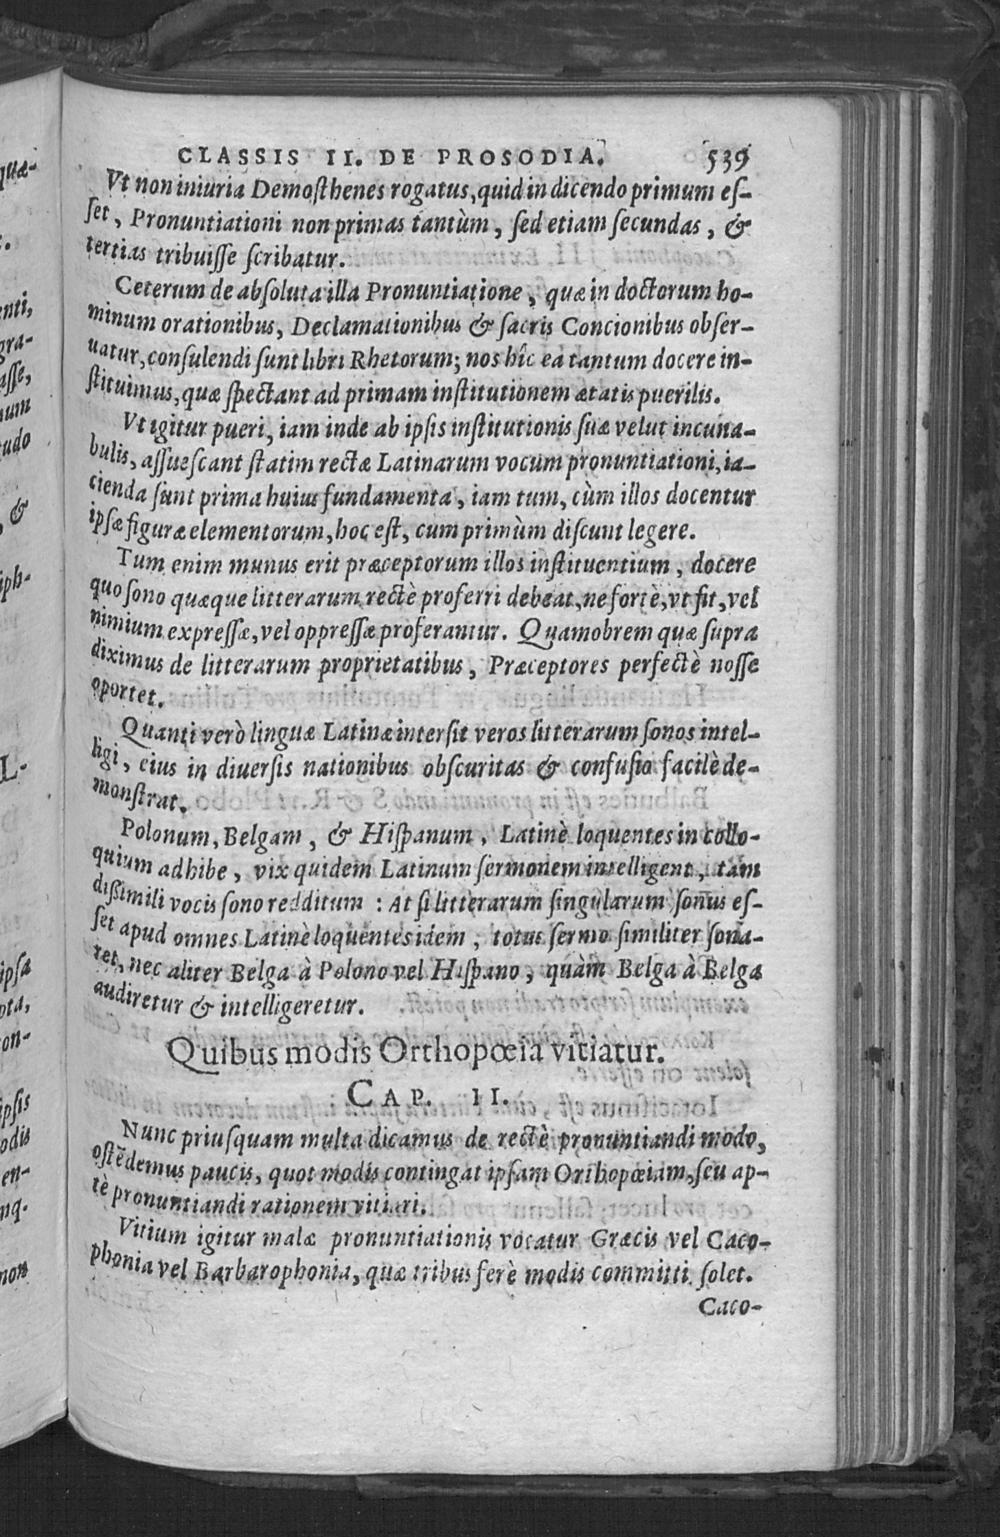 CLASSIS II. DE PROSODIA. 539
Vt non iniuria Demosthenes rogatus, quid in dicendo primum es-
set, Pronuntiationi non primas tantùm, sed etiam secundas, &
tertias tribuisse scribatur.
Ceterum de absoluta illa Pronuntiatione, quæ in doctorum ho-
minum orationibus, Declamationibus & sacris Concionibus obser-
uatur, consulendi sunt libri Rhetorum; nos hîc ea tantum docere in-
stituimus, quæ spectant ad primam institutionem ætatis puerilis.
Vt igitur pueri, iam inde ab ipsis institutionis suæ velut incuna-
bulis, assuescant statim rectæ Latinarum vocum pronuntiationi, ia-
cienda sunt prima huius fundamenta, iam tum, cùm illos docentur
ipsæ figuræ elementorum, hoc est, cum primùm discunt legere.
Tum enim munus erit præceptorum illos instituentium, docere
quo sono quæque litterarum rectè proferri debeat, ne fortè, vt fit, vel
nimium expressæ, vel oppressæ proferantur. Quamobrem quæ supra
diximus de litterarum proprietatibus, Præceptores perfectè nosse
oportet.
Quanti verò linguæ Latinæ intersit veros litterarum sonos intel-
ligi, eius in diuersis nationibus obscuritas & confusio facilè de-
monstrat.
Polonum, Belgam, & Hispanum, Latinè loquentes in collo-
quium adhibe, vix quidem Latinum sermonem intelligent, tam
dissimili vocis sono redditum: At si litterarum singularum sonus es-
set apud omnes Latinè loquentes idem, totus sermo similiter sona-
ret, nec aliter Belga à Polono vel Hispano, quàm Belga à Belga
audiretur & intelligeretur.
Quibus modis Orthopœia vitiatur.
CAP. II.
Nunc priusquam multa dicamus de rectè pronuntiandi modo,
ostēdemus paucis, quot modis contingat ipsam Orthopœiam, seu ap-
tè pronuntiandi rationem vitiari.
Vitium igitur malæ pronuntiationis vocatur Græcis vel Caco-
phonia vel Barbarophonia, quæ tribus ferè modis committi solet.
Caco-